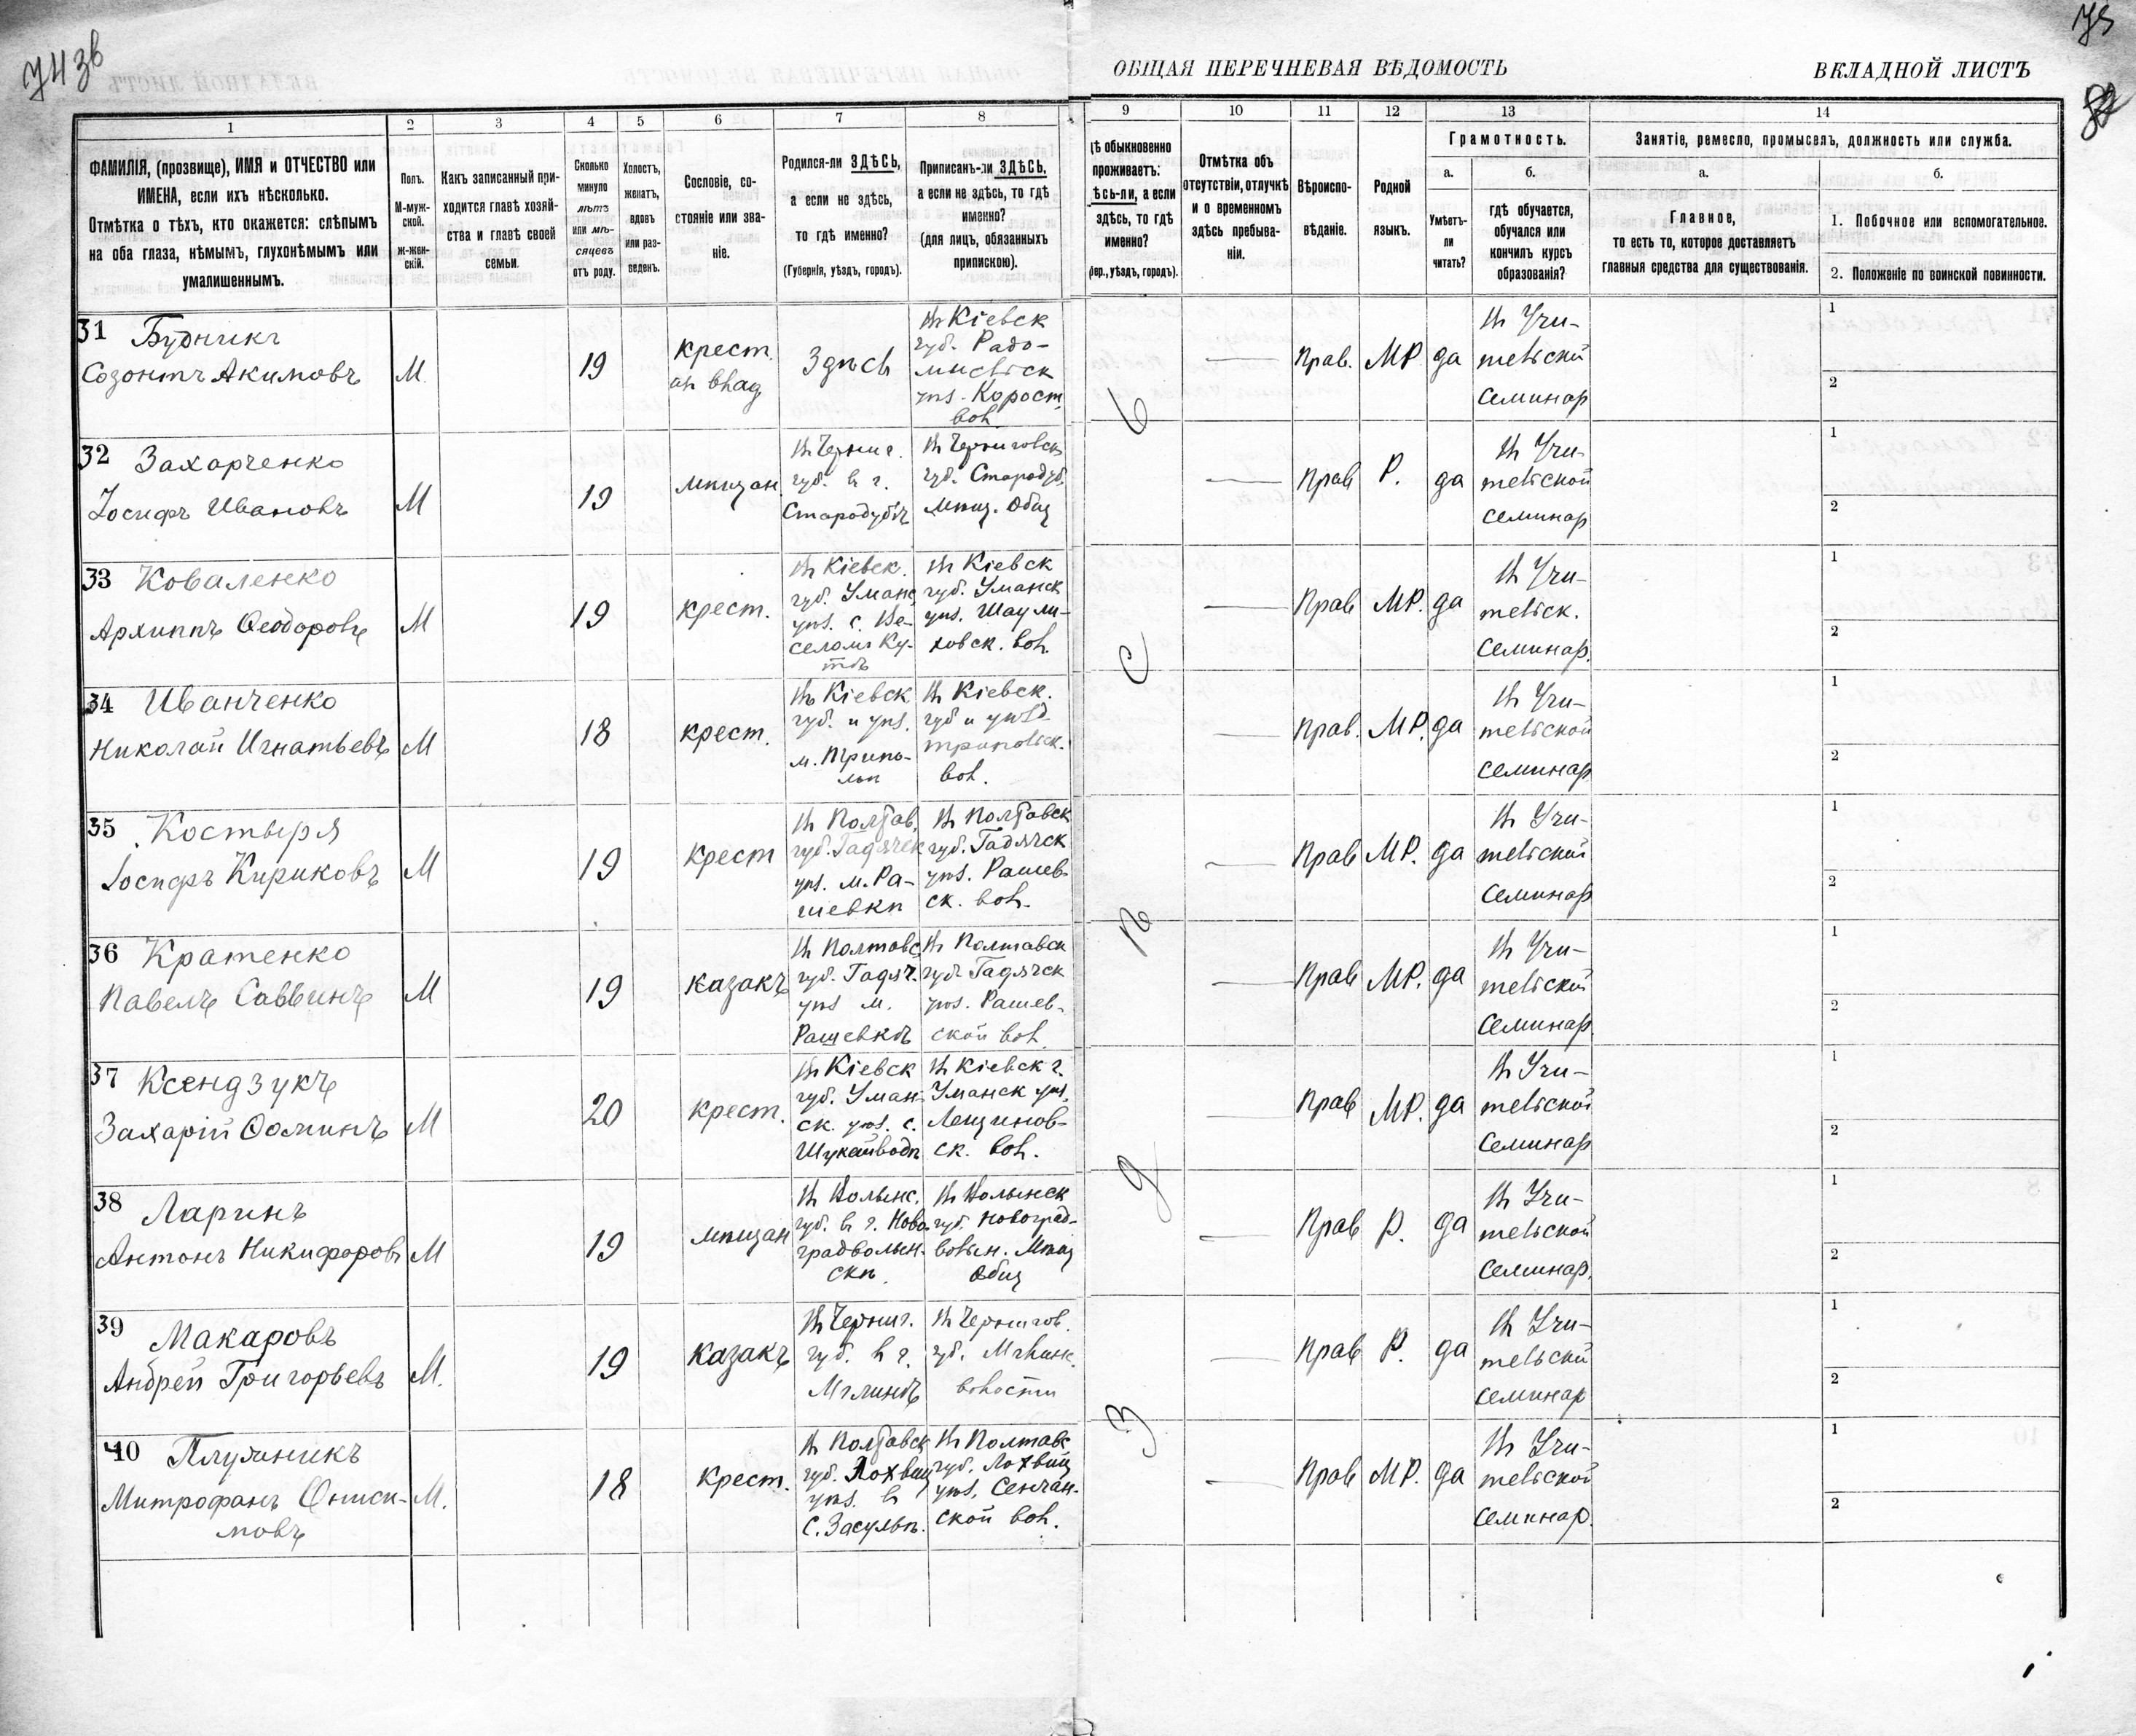 743в
75
ОБЩАЯ ПЕРЕЧНЕВАЯ ВѢДОМОСТЬ
ВКЛАДНОЙ ЛИСТЪ
1 2 3 4 5 6 7 8 9 10 11 12 13 14
ФАМИЛІЯ, (прозвище), ИМЯ и ОТЧЕСТВО или
ИМЕНА, если ихъ нѣсколько.
Отмѣтка о тѣхъ, кто окажется: слѣпымъ
на оба глаза, нѣмымъ, глухонѣмымъ или
умалишеннымъ.
Полъ.
М-муж-
ской.
ж-жен-
скій.
Какъ записанный при-
ходится главѣ хозяй-
ства и главѣ своей
семьи.
Сколько
минуло
лѣтъ
или мѣ-
сяцевъ
отъ роду.
Холостъ,
женатъ,
вдовъ
или раз-
веденъ.
Сословіе, со-
стояніе или зва-
ніе.
Родился-ли ЗДѢСЬ,
а если не здѣсь,
то гдѣ именно?
(Губернія, уѣздъ, городъ).
Приписанъ-ли ЗДѢСЬ,
а если не здѣсь, то гдѣ
именно?
(для лицъ, обязанныхъ
припискою).
ѣ обыкновенно
проживаетъ:
ѣсь-ли, а если
здѣсь, то гдѣ
именно?
бер., уѣздъ, городъ).
Отмѣтка объ
отсутствіи, отлучкѣ
и о временномъ
здѣсь пребыва-
ніи.
Вѣроиспо-
вѣданіе.
Родной
языкъ.
Грамотность.
а.
Умѣетъ-
ли
читать?
б.
гдѣ обучается,
обучался или
кончилъ курсъ
образованія?
Занятіе, ремесло, промыселъ, должность или служба.
а.
Главное,
то есть то, которое доставляетъ
главныя средства для существованія.
б.
1. Побочное или вспомогательное.
2. Положеніе по воинской повинности.
31 Будникъ
Созонтъ Акимовъ
М
19
крест.
Здѣсь
въ Кіевск
губ. Радо-
мысльск
уѣз. Корост.
вол.
Прав. МР да
въ Учи-
тельской
семинар
1
2
32 Захарченко
Іосифъ Ивановъ
М
19
мѣщан.
въ Черниг.
губ. в г.
Стародубѣ
въ Черниговск
губ. Стародуб.
мѣщ. Общ
Прав Р. да
въ Учи-
тельской
семинар
1
2
33 Коваленко
Архиппъ Ѳеодоровъ
М
19
крест.
въ Кіевск.
губ. Уманс
уѣз. с. Ве-
селомъ Ку-
тѣ
въ Кіевск
губ. Уманск
уѣз. Шаули-
ховск. вол.
Прав МР. да
въ Учи-
тельск.
семинар.
1
2
34 Иванченко
Николай Игнатьевъ
М
18
крест.
въ Кіевск
губ. и уѣз.
м. Трипо-
льѣ
въ Кіевск.
губ и уѣзд
трипольск.
вол.
Прав. МР. да
въ Учи-
тельской
семинар
1
2
35 Костыря
Іосифъ Кириковъ
М
19
крест
въ Полтав.
губ. Гадячск
уѣз. м. Ра-
шевкѣ
въ Полтавск
губ. Гадячск
уѣз. Рашев-
ск. вол.
Прав МР. да
въ Учи-
тельской
семинар
1
2
36 Кратенко
Павелъ Саввинъ
М
19
казакъ
въ Полтавс
губ. Гадяч.
уѣз м.
Рашевкѣ
въ Полтавск
губ Гадячск
уѣз. Рашев-
ской вол.
Прав МР. да
въ Учи-
тельской
семинар.
1
2
37 Ксендзукъ
Захарій Ѳоминъ
М
20
крест.
въ Кіевск
губ. Уман-
ск. уѣз. с.
Шукайводѣ
въ Кіевск г.
Уманск уѣз.
Лещинов-
ск. вол.
Прав МР. да
въ Учи-
тельской
семинар
1
2
38 Ларинъ
Антонъ Никифоровъ
М
19
мѣщан
въ Волынс.
губ. в г. Ново-
градволын-
скѣ.
въ Волынск
губ. Новоград-
волын. Мѣщ
Общ
Прав Р. да
въ Учи-
тельской
семинар.
1
2
39 Макаровъ
Андрей Григорьевъ
М.
19
казакъ
въ Черниг.
губ. в г.
Мглинѣ
въ Чернигов.
губ. Мглинс.
волости
Прав Р. да
въ Учи-
тельской
семинар
1
2
40 Плужникъ
Митрофанъ Ониси-
мовъ
М.
18
крест.
въ Полтавск
губ. Лохвиц
уѣз. в
с. Засульѣ.
въ Полтавс
губ. Лохвиц
уѣз. Сенчан-
ской вол.
Прав МР. да
въ Учи-
тельской
семинар.
1
2
В
с
ѣ
З